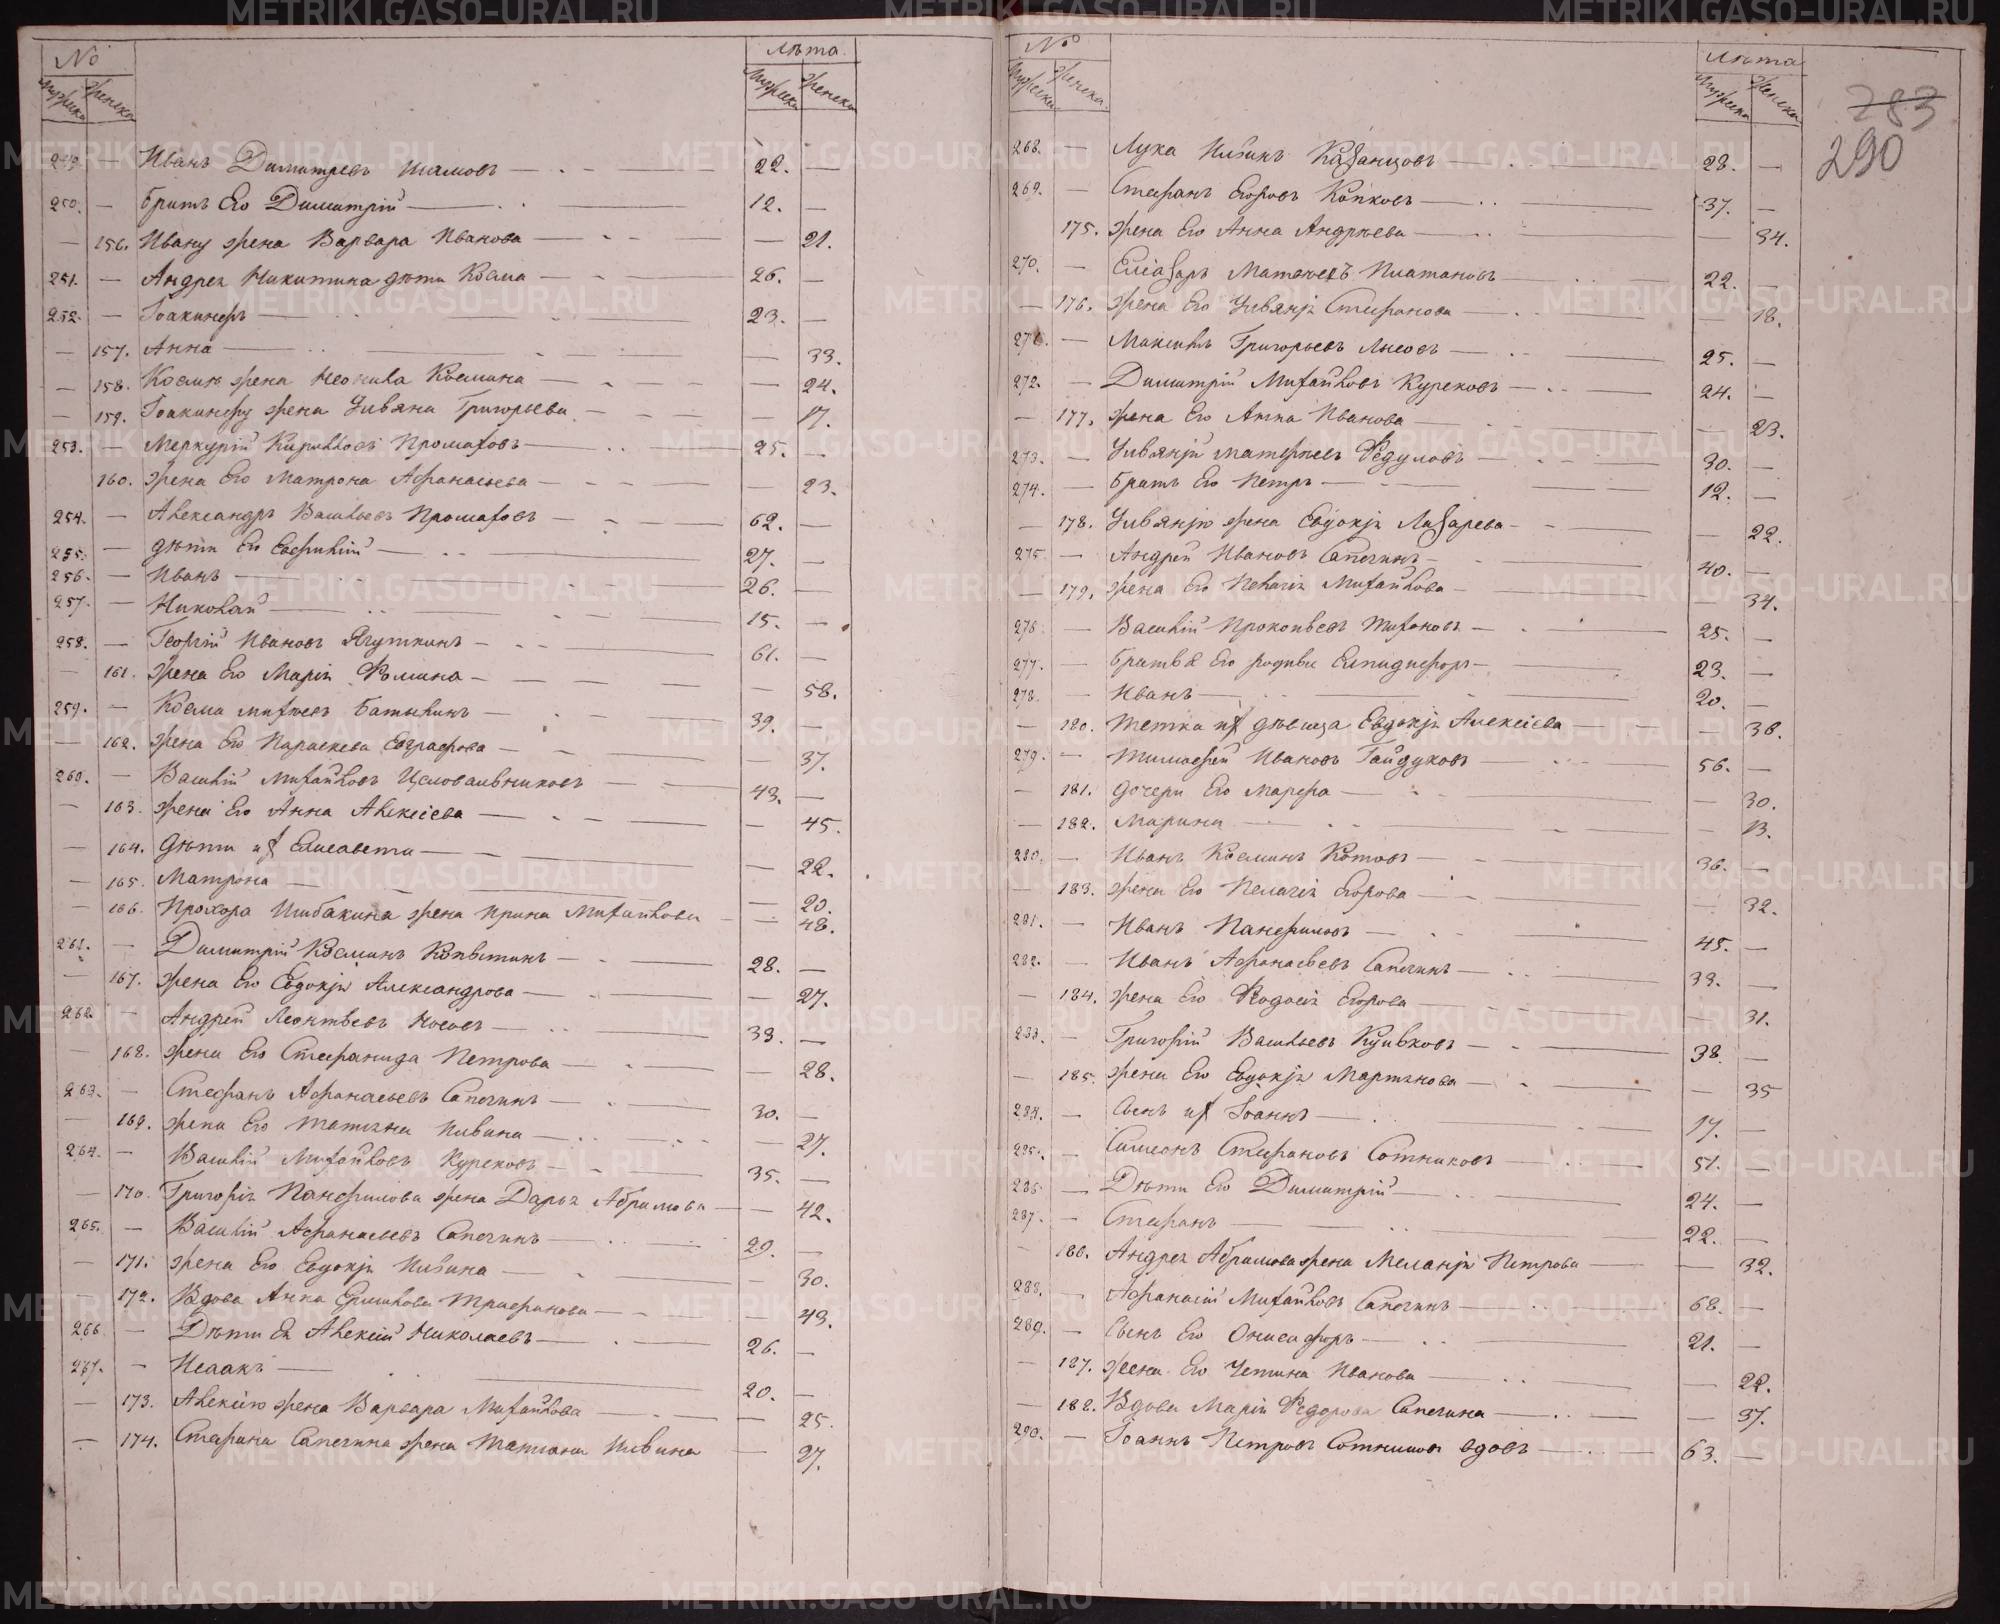 № Лѣта
Мужеска Женска Мужеска Женска
249. — Иванъ Димитревъ Шамовъ — 22. —
250. — Братъ Его Димитрій — 12. —
— 156. Ивану жена Варвара Иванова — — 21.
251. — Андрея Никитина дѣти Косма — 26. —
252. — Іоакинфъ — 23. —
— 157. Анна — — 33.
— 158. Космы жена Неонила Космина — — 24.
— 159. Іоакинфу жена Ульяна Григорьева — — 17.
253. — Меркурій Кириловъ — 25. —
160. жена Его Матрона Афанасьева — — 23.
254. — Александръ Васильевъ — 62. —
255. — дѣти Его Евфимій — 27. —
256. — Иванъ — 26. —
257. — Николай — 15. —
258. — Георгій Ивановъ Ягуткинъ — 61. —
— 161. жена Его Марія Фомина — — 58.
259. — Косма Михѣевъ Батылинъ — 39. —
— 162. жена Его Параскева Евграфова — — 37.
260. — Василій Михайловъ Целовальниковъ — 43. —
— 163. жена Его Анна Алексіева — — 45.
— 164. Дѣти их Елисавета — — 22.
— 165. Матрона — — 20.
— 166. Прохора Шибакина жена Ирина Михайлова — — 48.
261. — Димитрій Косминъ Копытинъ — 28. —
— 167. жена Его Евдокія Александрова — — 27.
262. — Андрей Леонтьевъ Носовъ — 33. —
— 168. жена Его Стефанида Петрова — — 28.
263. — Стефанъ Афанасьевъ Сапегинъ — 30. —
— 169. жена Его Татіана Ильина — — 27.
264. — Василій Михайловъ Куреновъ — 35. —
— 170. Григорія Панфилова жена Дарья Абрамова — — 42.
265. — Василій Афанасьевъ Сапегинъ — 29. —
— 171. жена Его Евдокія Ильина — — 30.
— 172. Вдова Анна Ермилова Трифанова — — 43.
266. — Дѣти Ея Алексій Николаевъ — 26. —
267. — Исаакъ — 20. —
— 173. Алексію жена Варвара Михайлова — — 25.
— 174. Стефана Сапегина жена Татіана Ильина — — 27.
№ Лѣта
Мужеска Женска Мужеска Женска
283
290
268. — Лука Ильинъ Казанцовъ — 28. —
269. — Стефанъ Егоровъ Копковъ — 37. —
175. жена Его Анна Андрѣева — — 34.
270. — Еліазаръ Матвѣевъ Платановъ — 22. —
— 176. жена Его Ульянія Стефанова — — 18.
271. — Максимъ Григорьевъ Лысовъ — 25. —
272. — Димитрій Михайловъ Куреновъ — 24. —
— 177. жена Его Анна Иванова — — 23.
273. — Ульяній Матфѣевъ Федуловъ — 30. —
274. — Братъ Его Петръ — 12. —
— 178. Ульянію жена Евдокія Лазарева — — 22.
275 — Андрей Ивановъ Сапегинъ — 40. —
— 179. жена Его Пелагія Михайлова — — 34.
276 — Василій Прокопьевъ Тихановъ — 25. —
277. — Братья Его родные Елпидифоръ — 23. —
278. — Иванъ — 20. —
— 180. Тетка их дѣвица Евдокія Алексіева — — 38.
279. — Тимофей Ивановъ Гайдуковъ — 56. —
— 181. дочери Его Марфа — — 30.
— 182. Марина — — 13.
280. — Иванъ Косминъ Котовъ — 36. —
— 183. жена Его Пелагія Егорова — — 32.
281. — Иванъ Панфиловъ — 45. —
282. — Иванъ Афанасьевъ Сапегинъ — 33. —
— 184. жена Его Федосія Егорова — — 31.
283. — Григорій Васильевъ Куликовъ — 38. —
— 185. жена Его Евдокія Мартынова — — 35
284. — Сынъ их Іоаннъ — 17. —
285. — Симеонъ Стефановъ Сотниковъ — 51. —
286. — Дѣти Его Димитрій — 24. —
287. — Стефанъ — 22. —
— 186. Андрея Абрамова жена Меланія Петрова — — 32.
288. — Афанасій Михайловъ Сапегинъ — 68. —
289. — Сынъ Его Онисифоръ — 21. —
— 187. жена Его Иванова — — 22.
— 188. Вдова Марія Федорова Сапегина — — 37.
290. — Іоаннъ Петровъ Сотниковъ вдовъ — 63. —
METRIKI.GASO-URAL.RU